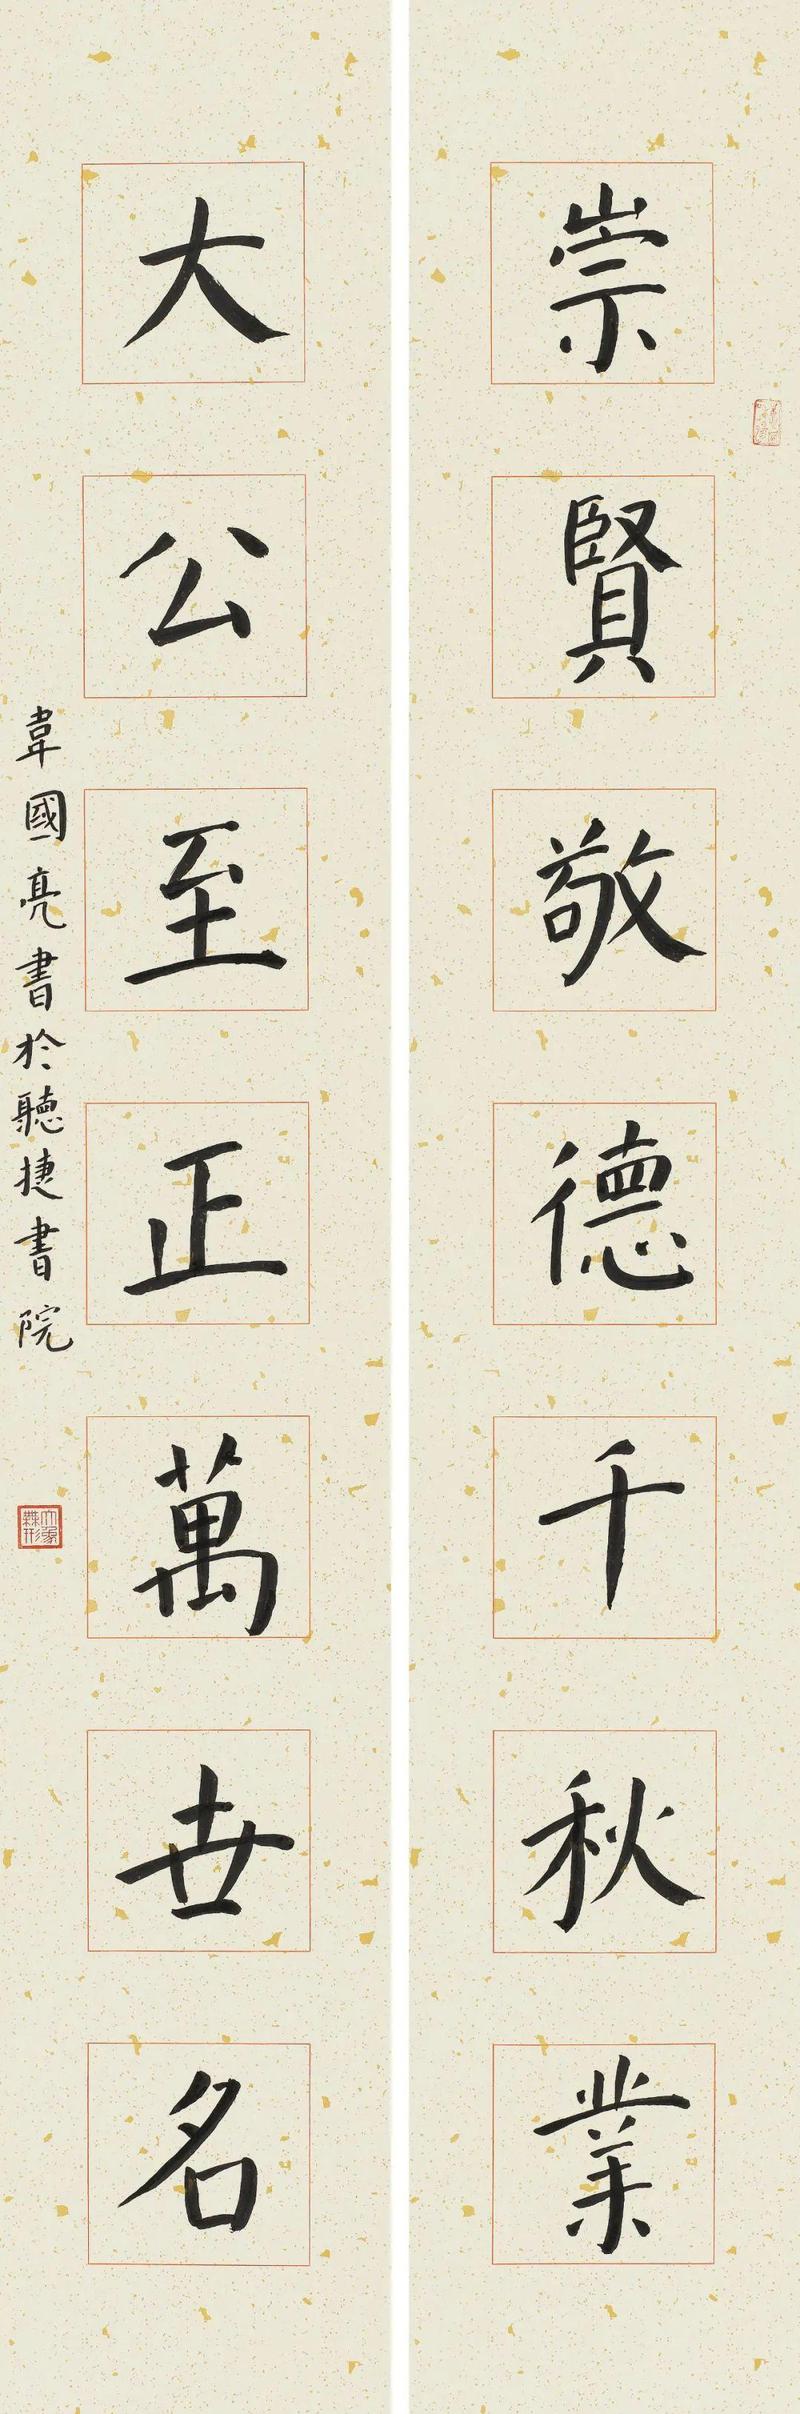 崇賢敬德千秋業
大公至正萬世名
韋國亮書於聽捷書院
大象無形